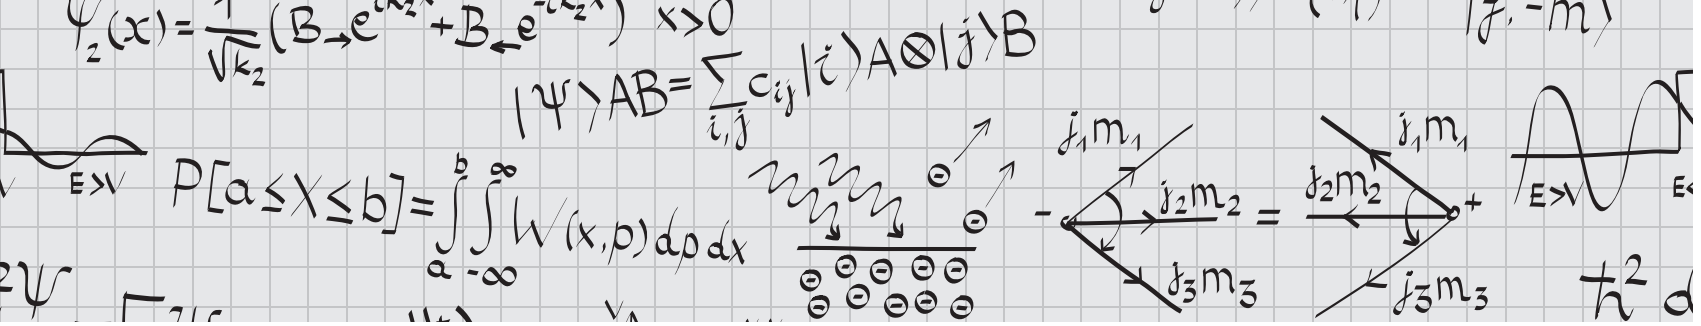 ψ₂(x) = 1/√k₂ (B→e^{ik₂x} + B←e^{-ik₂x}) x>0
|j,-m⟩
|Ψ⟩AB = Σ_{i,j} c_{ij}|i⟩A⊗|j⟩B
E>V
P[a≤X≤b] = ∫_a^b ∫_{-∞}^{∞} W(x,p) dp dx
⊖ ⊖
⊖ ⊖ ⊖ ⊖ ⊖
⊖ ⊖ ⊖ ⊖ ⊖
j₁m₁
- j₂m₂ =
j₃m₃
j₁m₁
j₂m₂ +
j₃m₃
E>V
E<
²Ψ
ħ² d